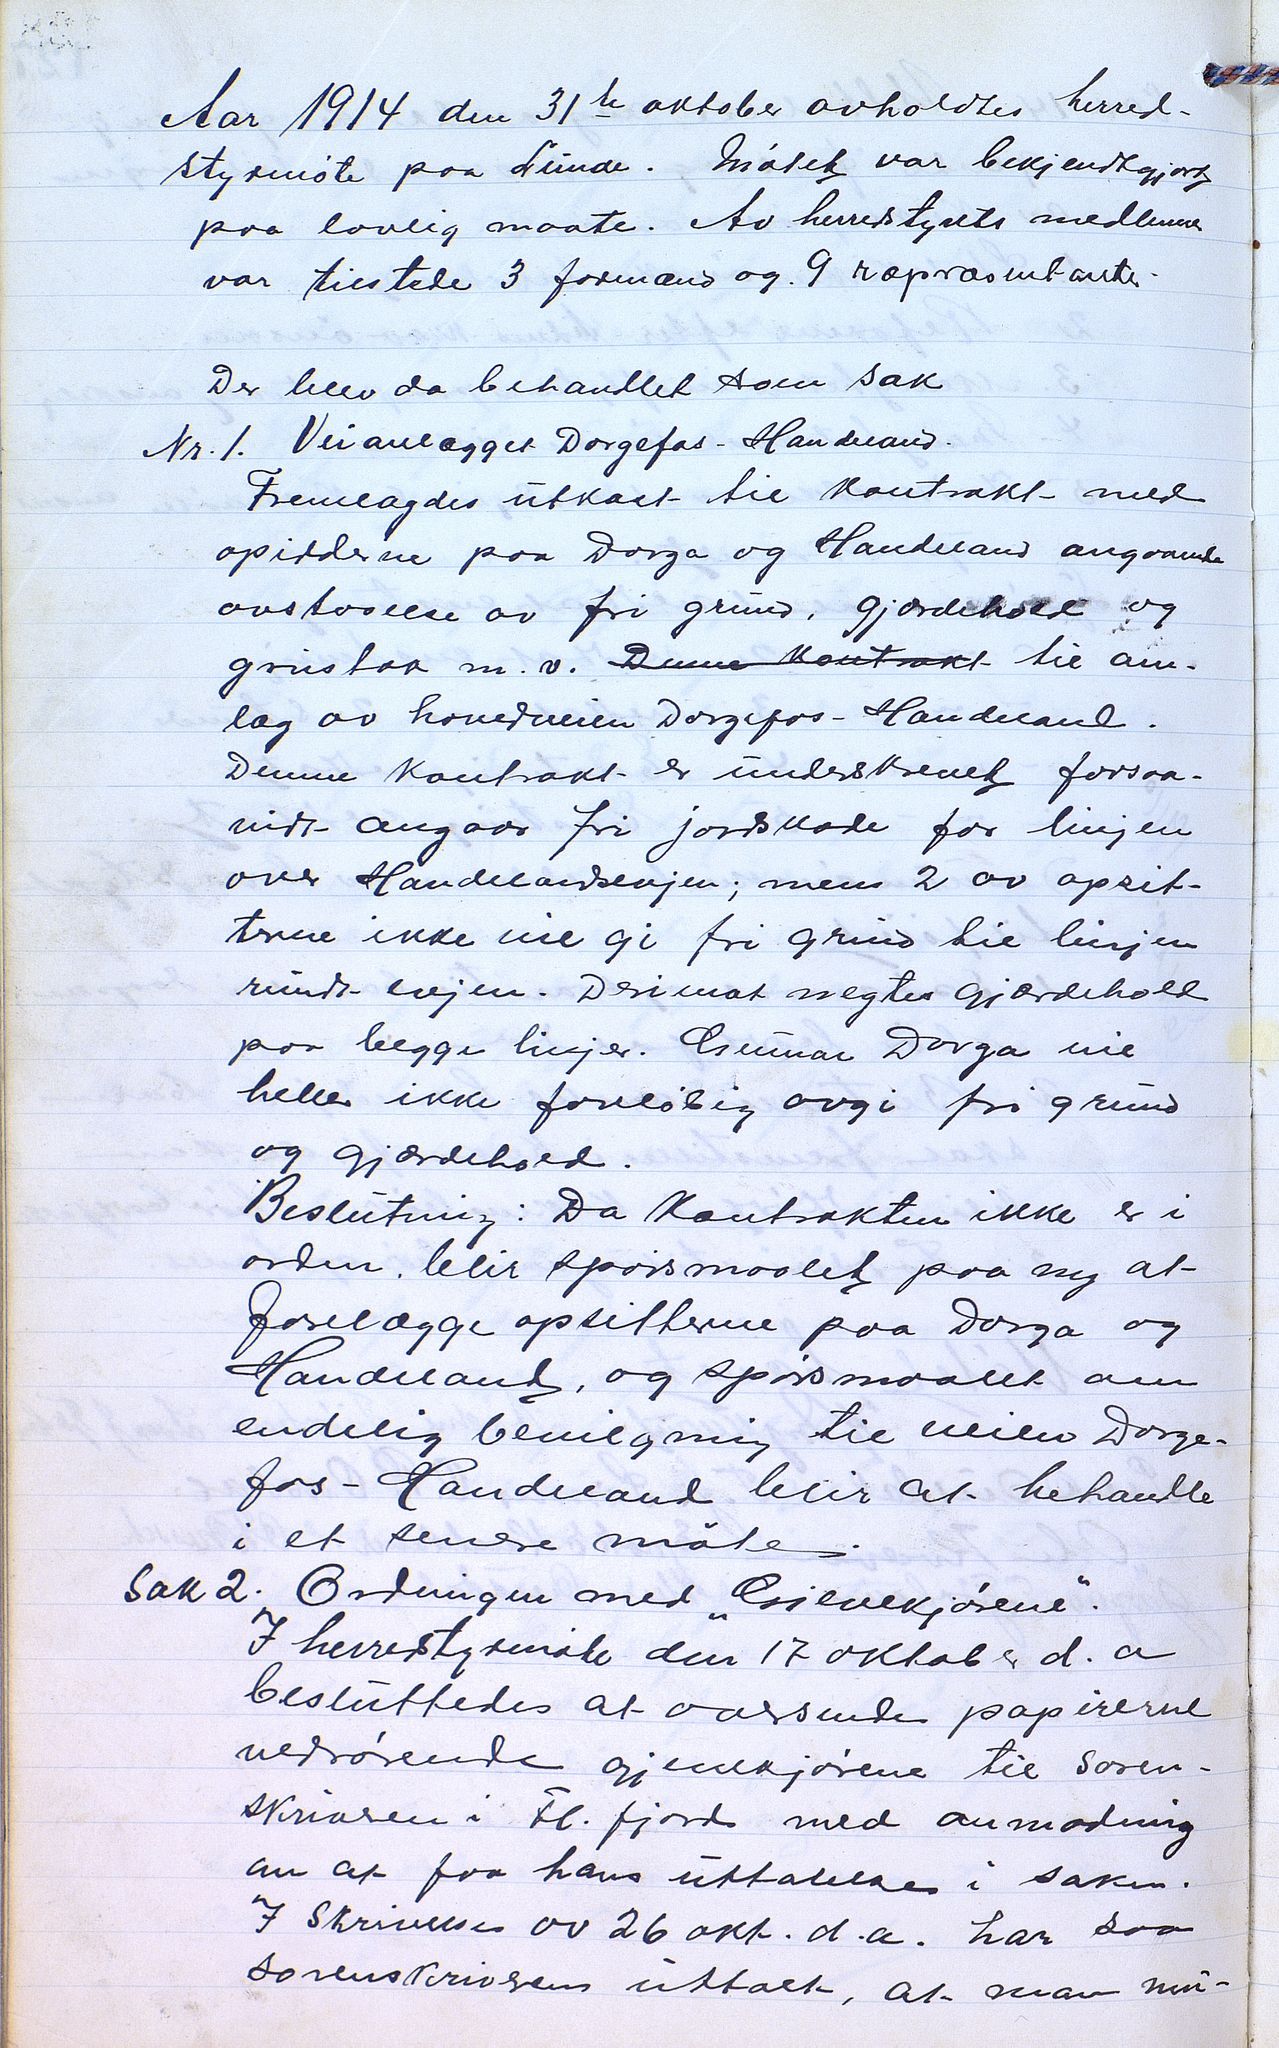 Aar 1914 den 31te oktober avholdtes herred-
styrmöte paa Lunde. Mötet var bekjendtgjort
paa lovlig maate. Av herredstyrets medlemmer
var tilstede 3 formænd og 9 repræsentanter.
Der blev da behandlet som sak
Nr. 1. Veianlægget Dorgefos - Handeland.
Fremlagdes utkast til kontrakt med
opsidderne paa Dorga og Handeland angaaende
avstaaelse av fri grund, gjærdehold og
grustak m. v. Denne kontrakt til an-
læg av hovedveien Dorgefos - Handeland.
Denne kontrakt er underskrevet forsaa-
vidt angaar fri jordskade for linjen
over Handelandsengen; mens 2 av opsit-
terne ikke vil gi fri grund til linjen
rundt engen. Derimot negtes gjærdehold
paa begge linjer. Gunnar Dorga vil
heller ikke foreløbig avgi fri grund
og gjærdehold.
Beslutning: Da kontrakten ikke er i
orden, blir spörsmaalet paa ny at
forelægge opsitterne paa Dorga og
Handeland, og spörsmaalet om
endelig bevilgning til veien Dorge-
fos - Handeland blir at behandle
i et senere möte.
Sak 2. Ordningen med "Gjilevekjörene".
I herredstyrmöte den 17 oktober d. a
besluttedes at oversende papirerne
vedrörende kjörene til soren-
skriveren i Fl. fjord med anmodning
om at faa hans uttalelse i saken.
I skrivelse av 26 okt. d. a. har saa
sorenskriveren uttalt, at man